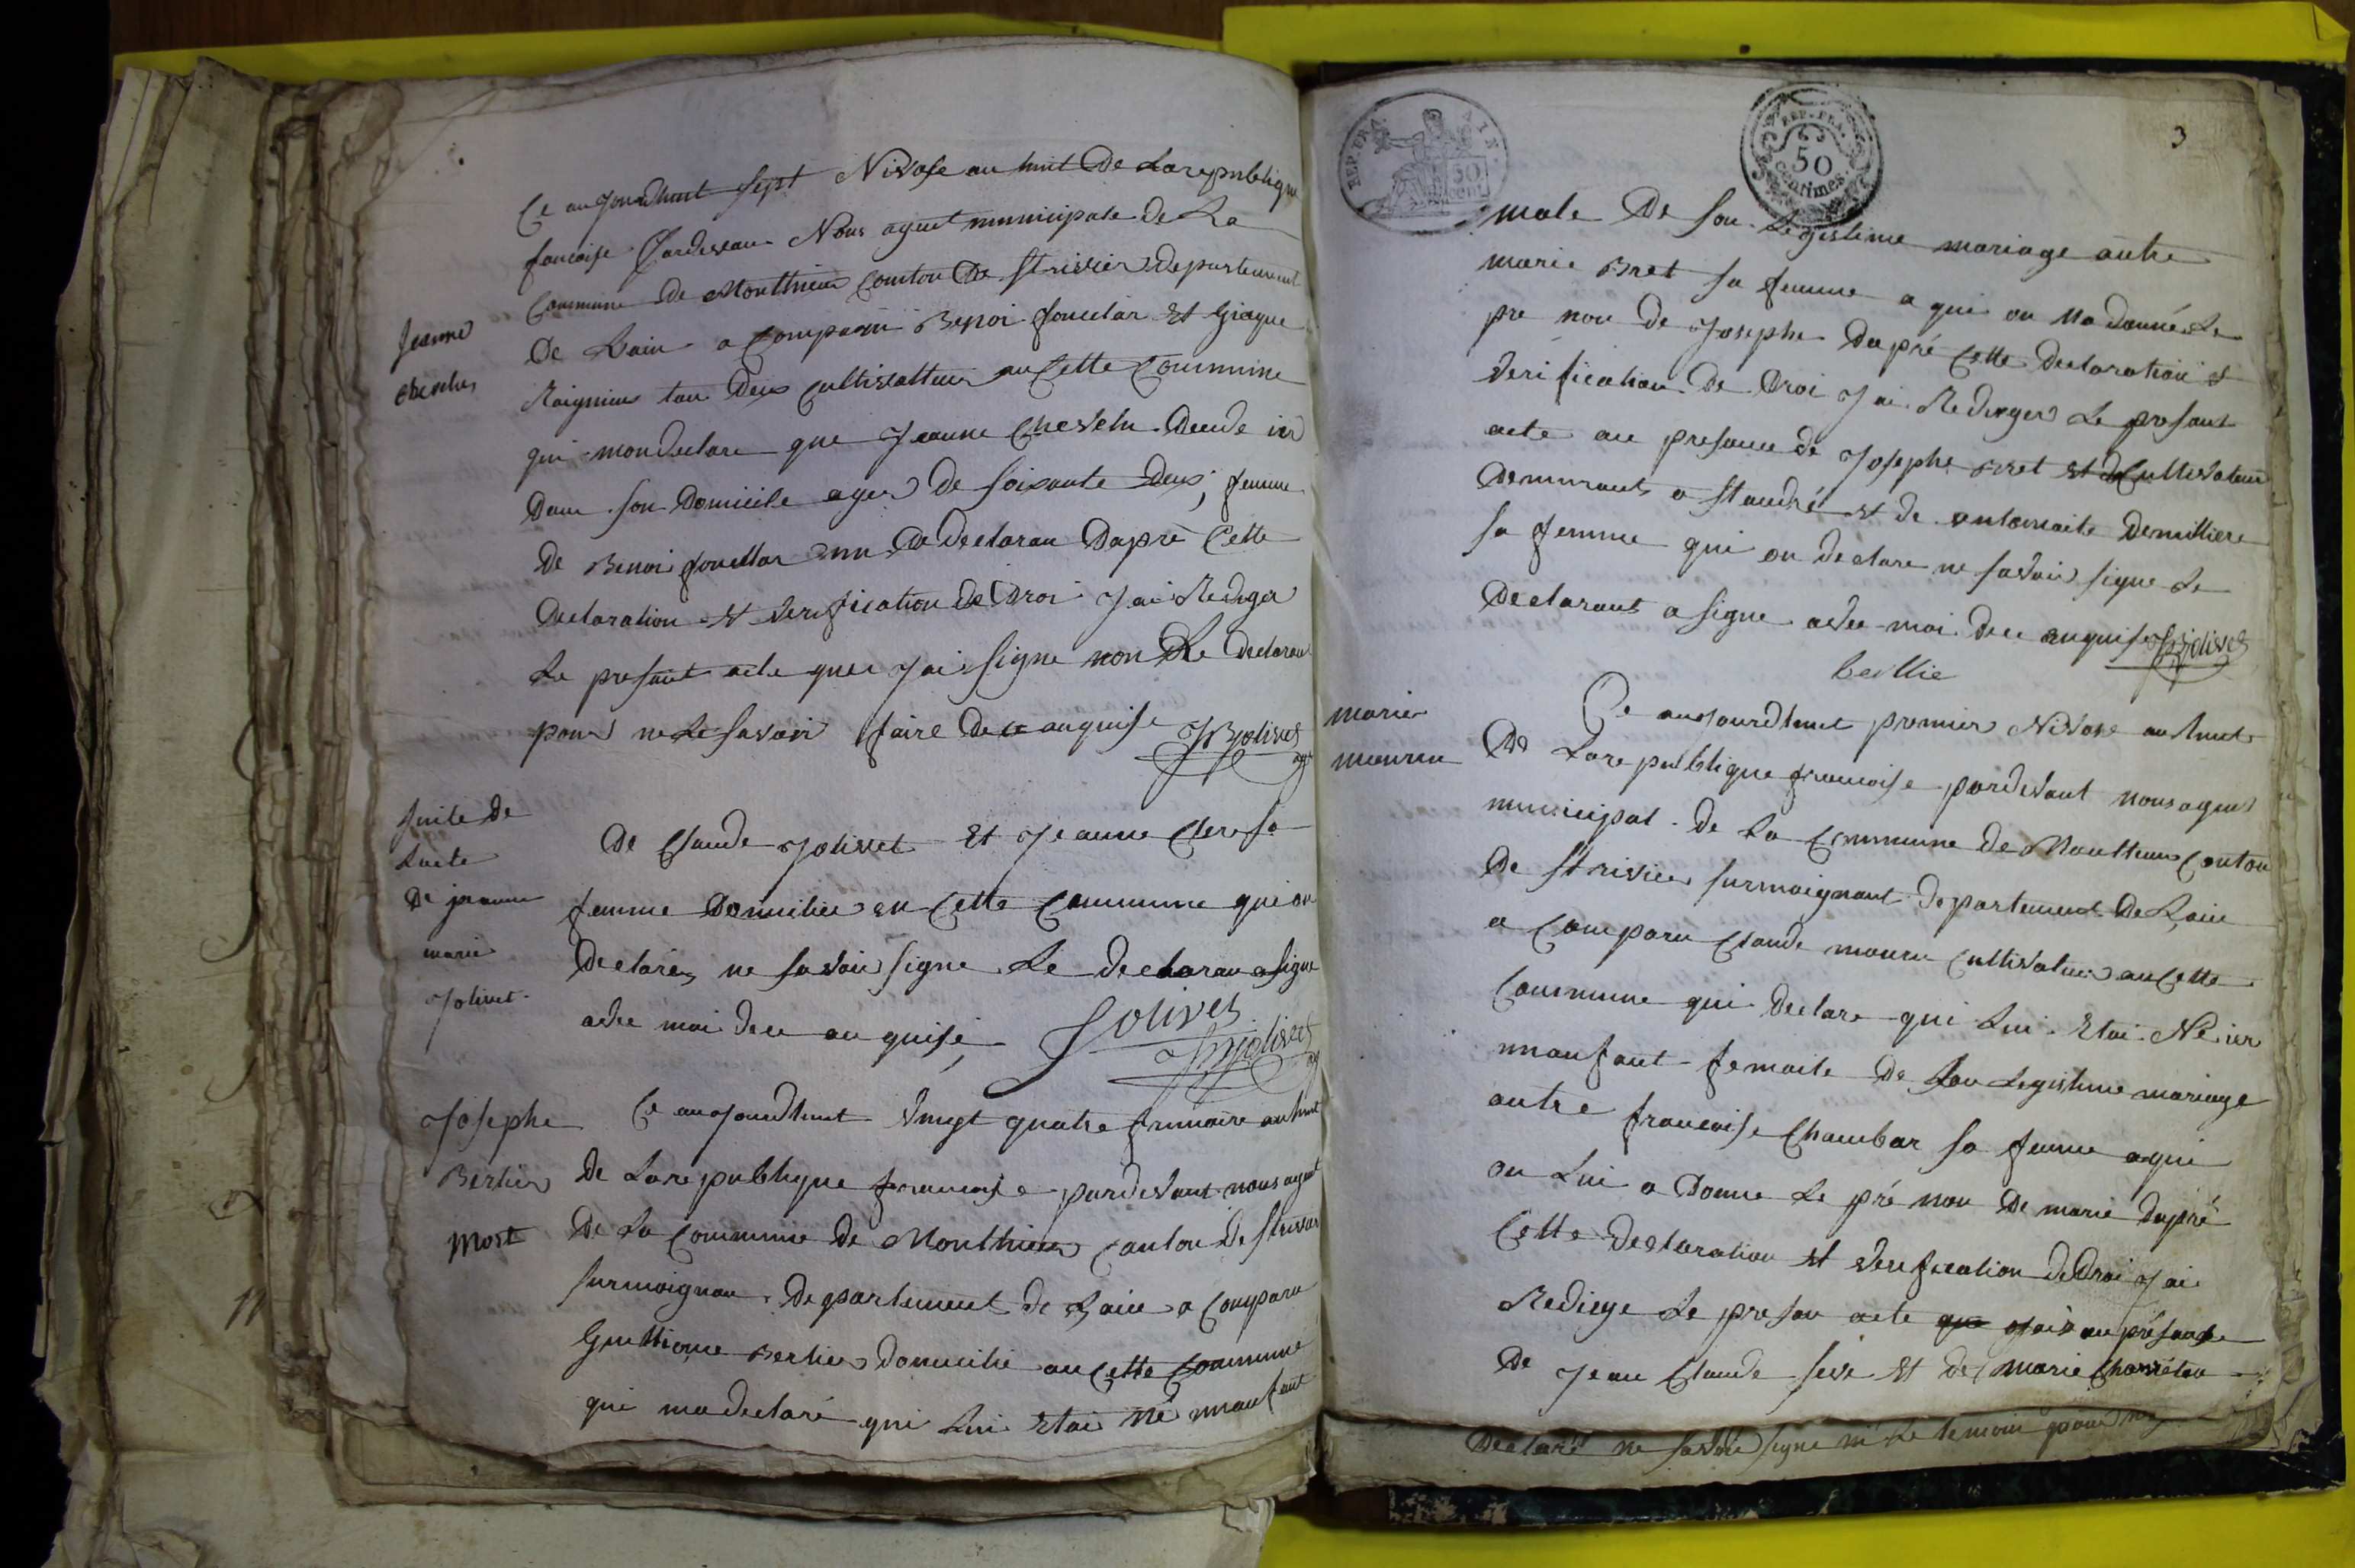 Jeanne
chevelu
Ce aujourdhuit sept Nivose au huit De Larepublique
francoise Pardevau Nous agent municipale de La
Commune de Monthieux Conton De St rivier departement
De Lain a Comparu Benoi fouclar Et
tou Deux Cultivatteur au Cette Commune
qui mon declare que Jeanne Chevelu Decede ier
Dans son Domicile ager de soixante Deux, femme
De Benoi fouillar un De declarau Daprè Cette
Declaration et verification de Droi Jai Rediger
Le presant acte que Jai signe non Le declarau
pour ne Le savoir faire De ce anquise JBJolivet
ag
suite de
Lacte
De jeanne
marie
Jolivet
De Claude Jolivet Et Jeanne Clere sa
femme Domiciliee en Cette Commune qui on
Declarez ne savoir signe Le declarau a signe
avec moi dece anquise
Jolivet
JBJolivet
ag
Josephe
Berlier
Mort
Ce aujourdhuit vingt quatre frimaire au huit
De Larepublique francoise pardevant nous agent
De La Commune De Monthieux Canton De Strivier
surmoignan Departement de Lain a Comparu
Guilliome Berlier domicilié au Cette Commune
qui ma declaré qui Lui Etai né unanfant
REP. FRA.
AIN.
50
cent
REP. FRA.
50
centimes.
3
male De son Legistime mariage autre
marie Bret sa femme a qui on Na donné Le
pre non de Josephe Daprè Cette Declaration et
verification De Droi Jai Rediger Le presant
acte au presance de Josephe Bret et de Cultivateur
Demurant a St andré et de antoinaite Demilliere
sa femme qui on declare ne savoir signe Le
Declarant a signe avec moi dece anquise JBJolivet
berllie
marie
mouru
Ce aujourdhuit premier Nivose au huit
De Larepublique francoise pardevant nous agent
municipal de La Commune de Montthieux Conton
De St rivier surmoignant departement De Lain
a Comparu Claude mouru Cultivateur au Cette
Commune qui declare qui Lui Etai Né ier
unanfant femaile De son Legistime mariage
autre francoise Chambar sa femme a qui
on Lui a Donne Le pré non De marie daprè
Cette Declaration et verification de Droi Jai
Redige Le presan acte que jai au presance
De Jean Claude seve Et de marie Charreton
Declaré ne savoir signe ni Le temoin pour